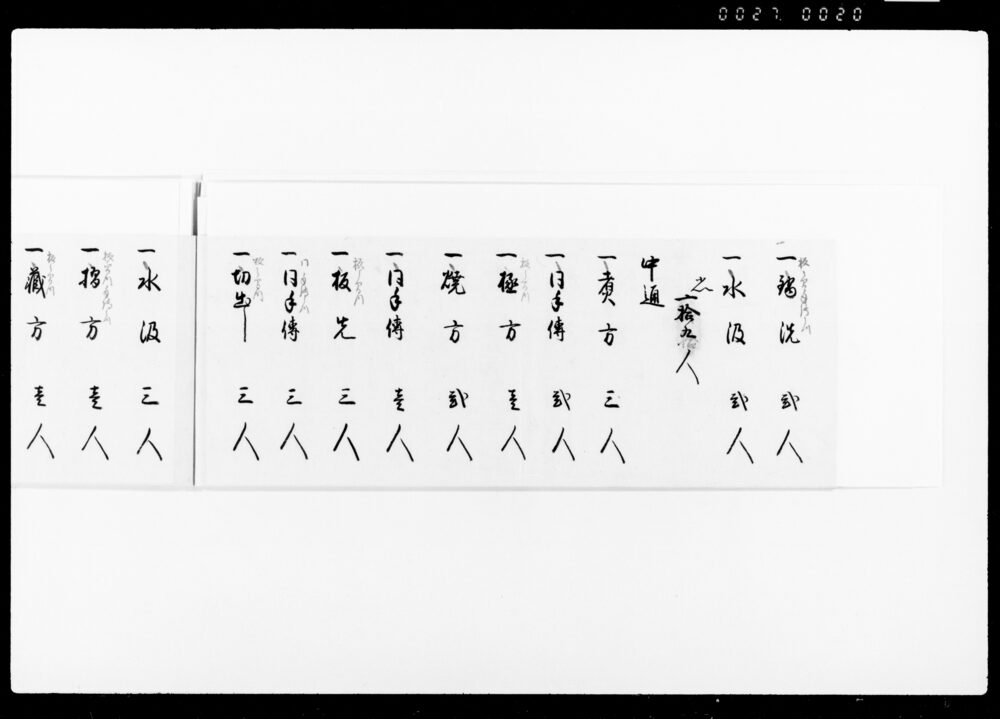 0027. 0020
一鍋洗 弐人
一水汲 弐人
〆拾九人
中通
一煮方 三人
一同手傳 弐人
一極方 壱人
一焼方 弐人
一同手傳 壱人
一板先 三人
一同手傳 三人
一切出 三人
一水汲 三人
一摺方 壱人
一蔵方 壱人